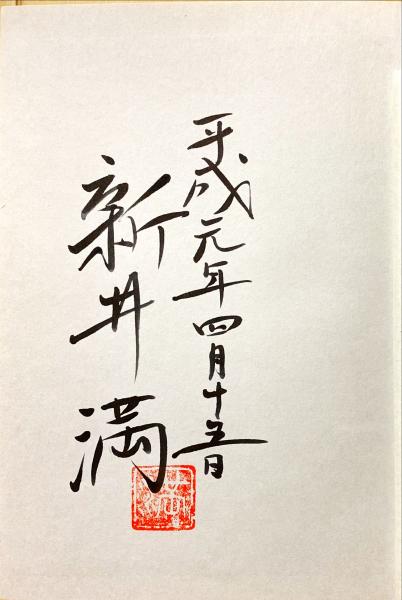 平成元年四月十五日
新井満